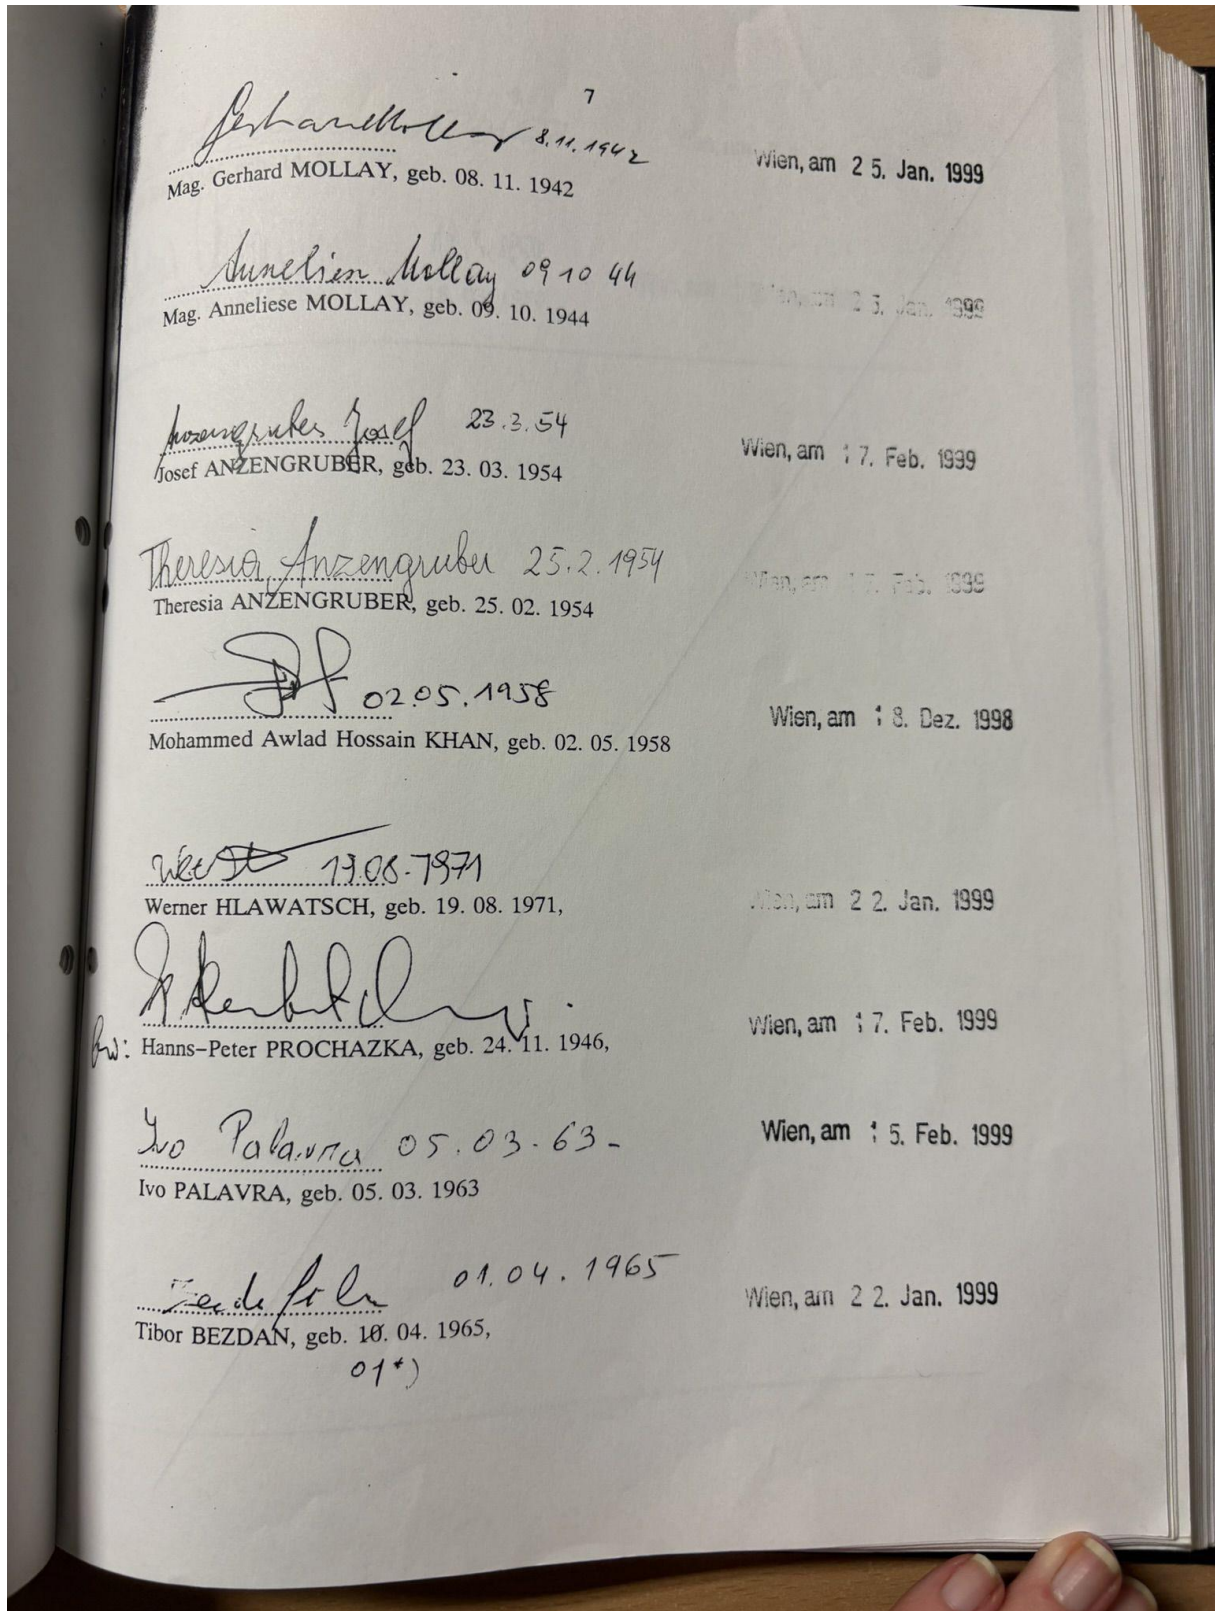 7
8.11.1942
Mag. Gerhard MOLLAY, geb. 08. 11. 1942
Wien, am 2 5. Jan. 1999
Mollay 09 10 44
Mag. Anneliese MOLLAY, geb. 09. 10. 1944
Wien, am 2 5. Jan. 1999
Anzengruber Josef 23.3.54
Josef ANZENGRUBER, geb. 23. 03. 1954
Wien, am 1 7. Feb. 1999
Theresia Anzengruber 25.2.1954
Theresia ANZENGRUBER, geb. 25. 02. 1954
Wien, am 1 7. Feb. 1999
02.05.1958
Mohammed Awlad Hossain KHAN, geb. 02. 05. 1958
Wien, am 1 8. Dez. 1998
19.08.-1971
Werner HLAWATSCH, geb. 19. 08. 1971,
Wien, am 2 2. Jan. 1999
Hanns-Peter PROCHAZKA, geb. 24. 11. 1946,
Wien, am 1 7. Feb. 1999
Ivo Palavra 05.03-63-
Ivo PALAVRA, geb. 05. 03. 1963
Wien, am 1 5. Feb. 1999
01.04.1965
Tibor BEZDAN, geb. 10. 04. 1965,
Wien, am 2 2. Jan. 1999
01*)